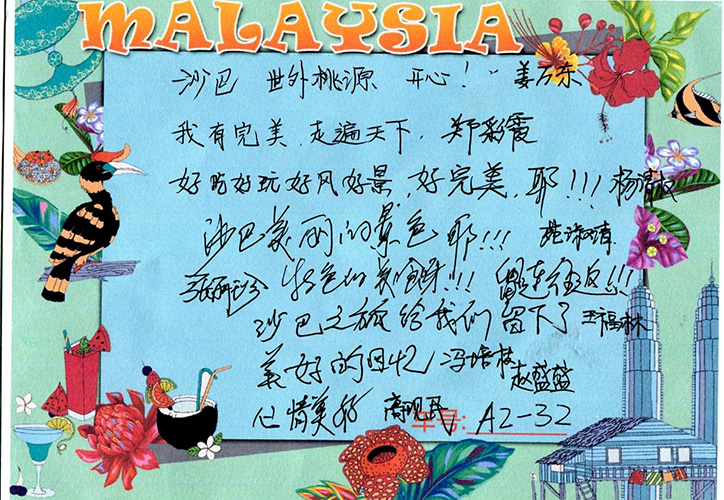 MALAYSIA
沙巴 世外桃源 开心！ 姜万东
我有完美.走遍天下. 郑彩霞
好吃好玩好风好景,好完美,耶!!! 杨
沙巴美丽的景色耶!!! 施淑清
特色的美食!!! 留连往返!!!
沙巴之旅给我们留下了 王福林
美好的回忆 冯培枝 赵盛盛
心情美好 A2-32